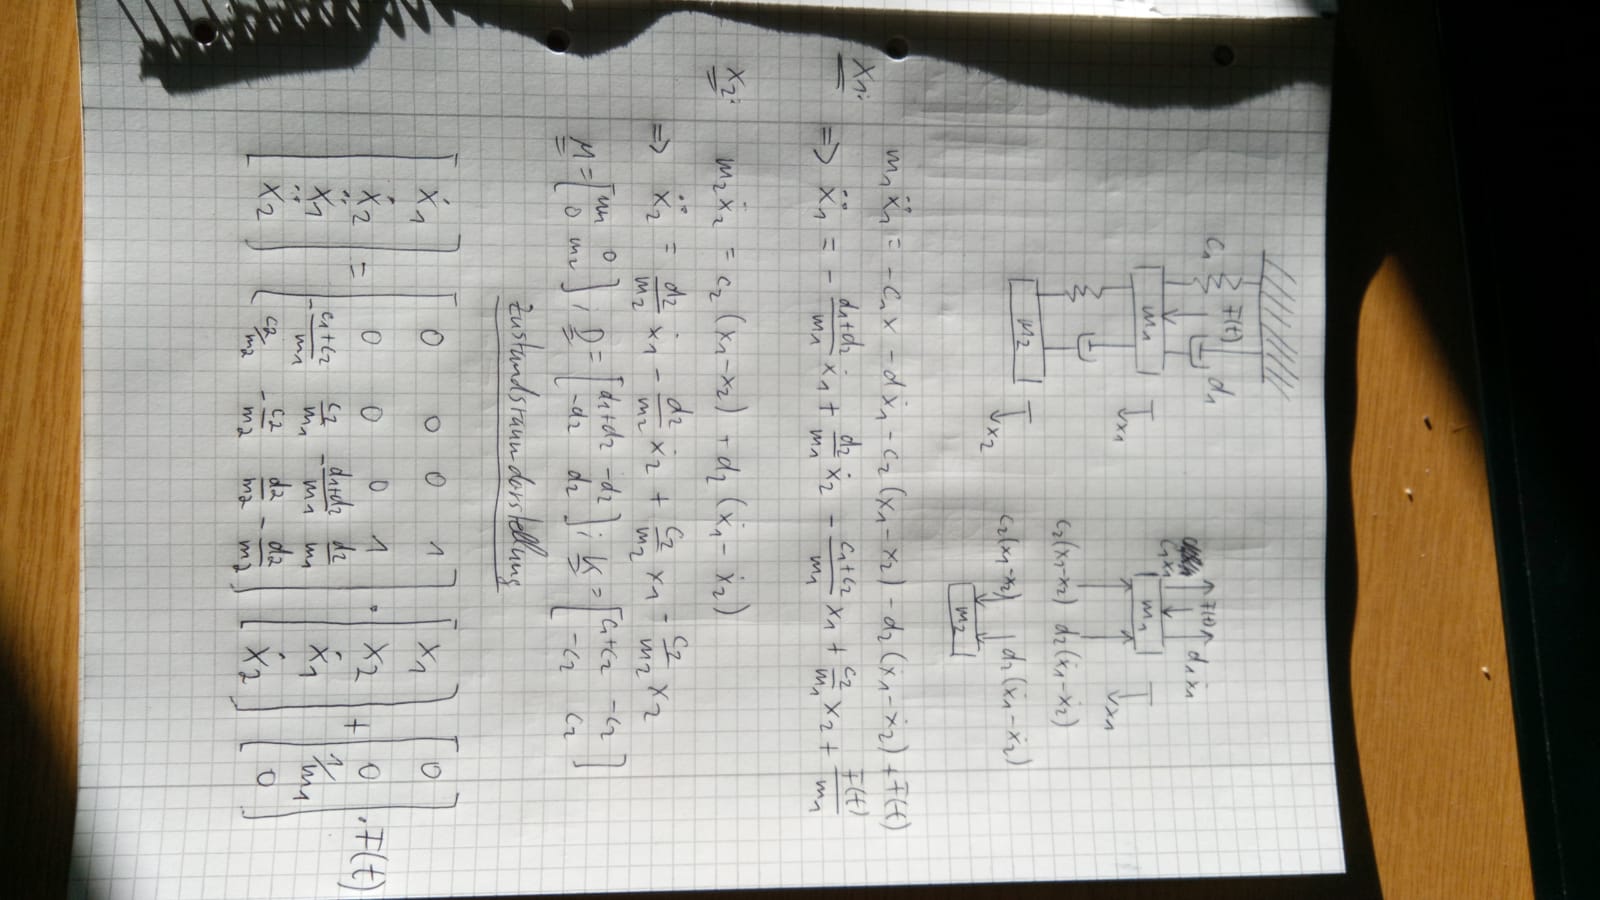 c₁ F(t) d₁
m₁ ↓x₁
m₂ ↓x₂
c₁x₁ F(t) d₁ẋ₁
m₁ ↓x₁
c₂(x₁-x₂) d₂(ẋ₁-ẋ₂)
c₂(x₁-x₂) d₂(ẋ₁-ẋ₂)
m₂
x₁: m₁ẍ₁ = -c₁x - dẋ₁ - c₂(x₁-x₂) - d₂(ẋ₁-ẋ₂) + F(t)
=> ẍ₁ = - (d₁+d₂)/m₁ ẋ₁ + d₂/m₁ ẋ₂ - (c₁+c₂)/m₁ x₁ + c₂/m₁ x₂ + F(t)/m₁
x₂: m₂ẍ₂ = c₂(x₁-x₂) + d₂(ẋ₁-ẋ₂)
=> ẍ₂ = d₂/m₂ ẋ₁ - d₂/m₂ ẋ₂ + c₂/m₂ x₁ - c₂/m₂ x₂
M = [m₁ 0; 0 m₂] ; D = [d₁+d₂ -d₂; -d₂ d₂] ; K = [c₁+c₂ -c₂; -c₂ c₂]
Zustandsraumdarstellung
[ẋ₁] [0 0 0 1] [x₁] [0]
[ẋ₂] = [0 0 0 1] · [x₂] + [0] · F(t)
[ẍ₁] [-(c₁+c₂)/m₁ c₂/m₁ -(d₁+d₂)/m₁ d₂/m₁] [ẋ₁] [1/m₁]
[ẍ₂] [c₂/m₂ -c₂/m₂ d₂/m₂ -d₂/m₂] [ẋ₂] [0]